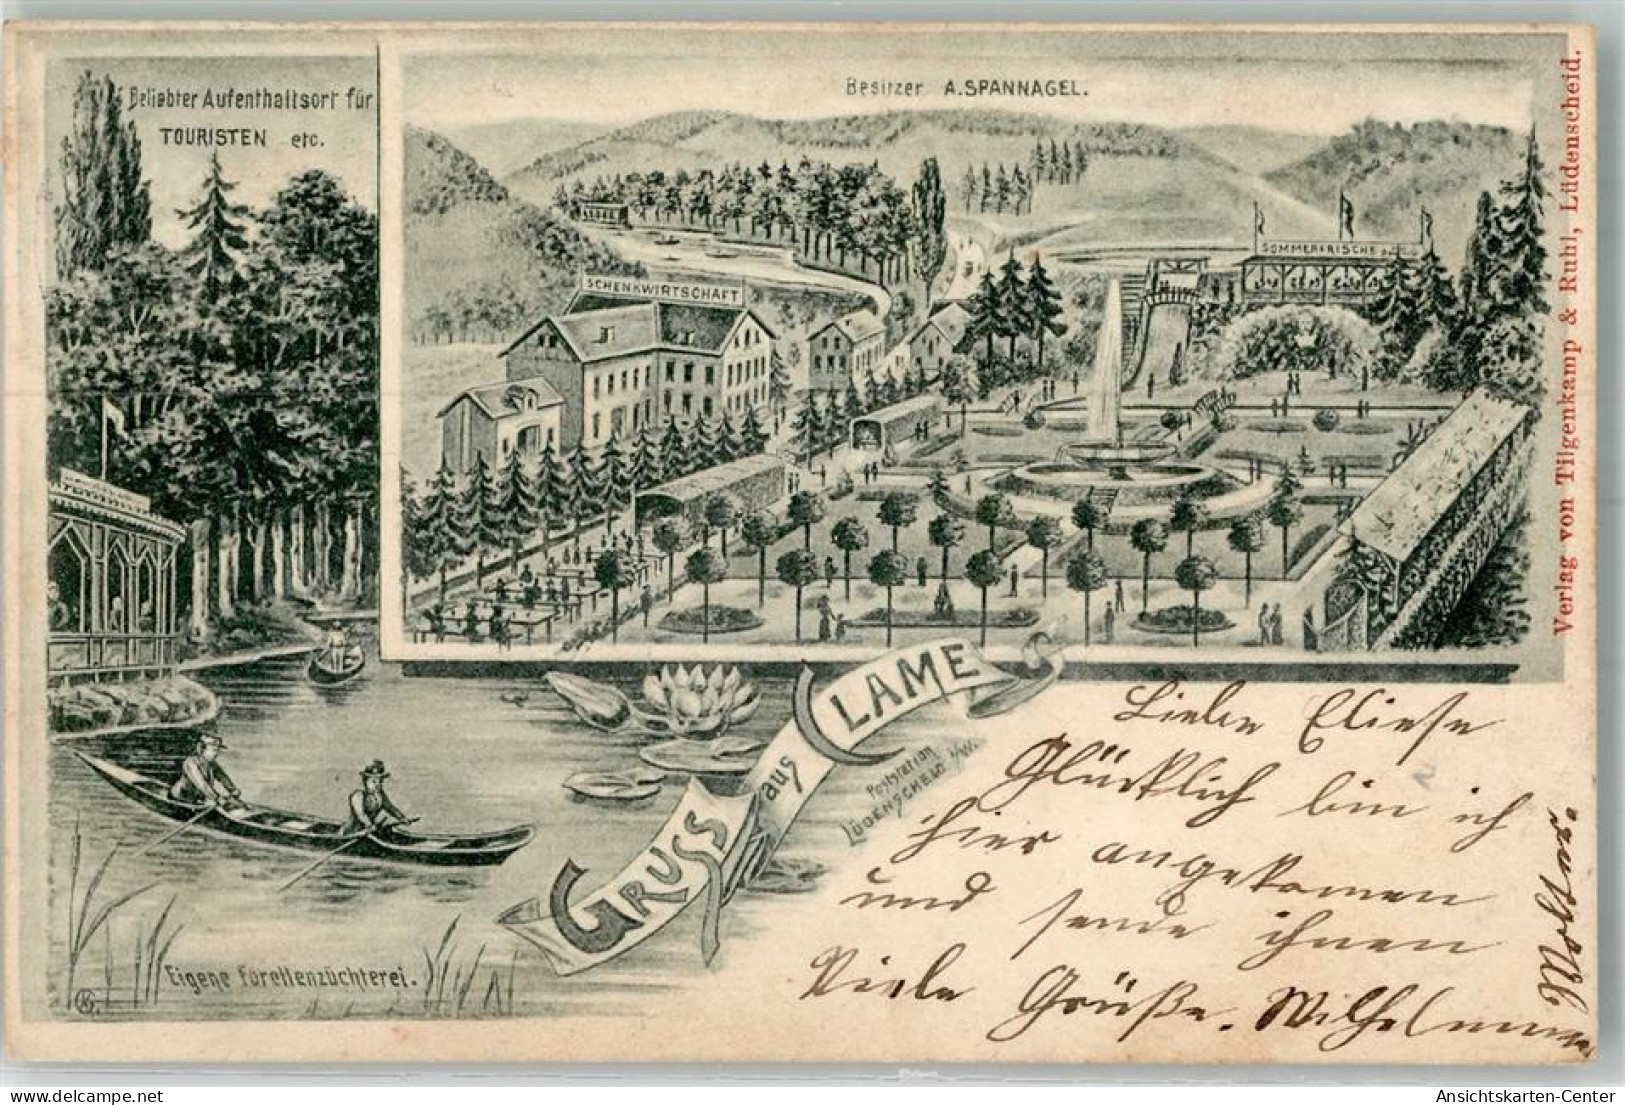 Beliebter Aufenthaltsort für
TOURISTEN etc.
Besitzer A. SPANNAGEL.
SCHENKWIRTSCHAFT
SOMMERFRISCHE
Verlag von Tilgenkamp & Ruhl, Lüdenscheid.
GRUSS aus CLAME
Poststation
LÜDENSCHEID i/W.
Eigene Forellenzüchterei.
Liebe Eliese
Glücklich bin ich
hier angekomen
und sende ihnen
Viele Grüße.
delcampe.net
Ansichtskarten-Center